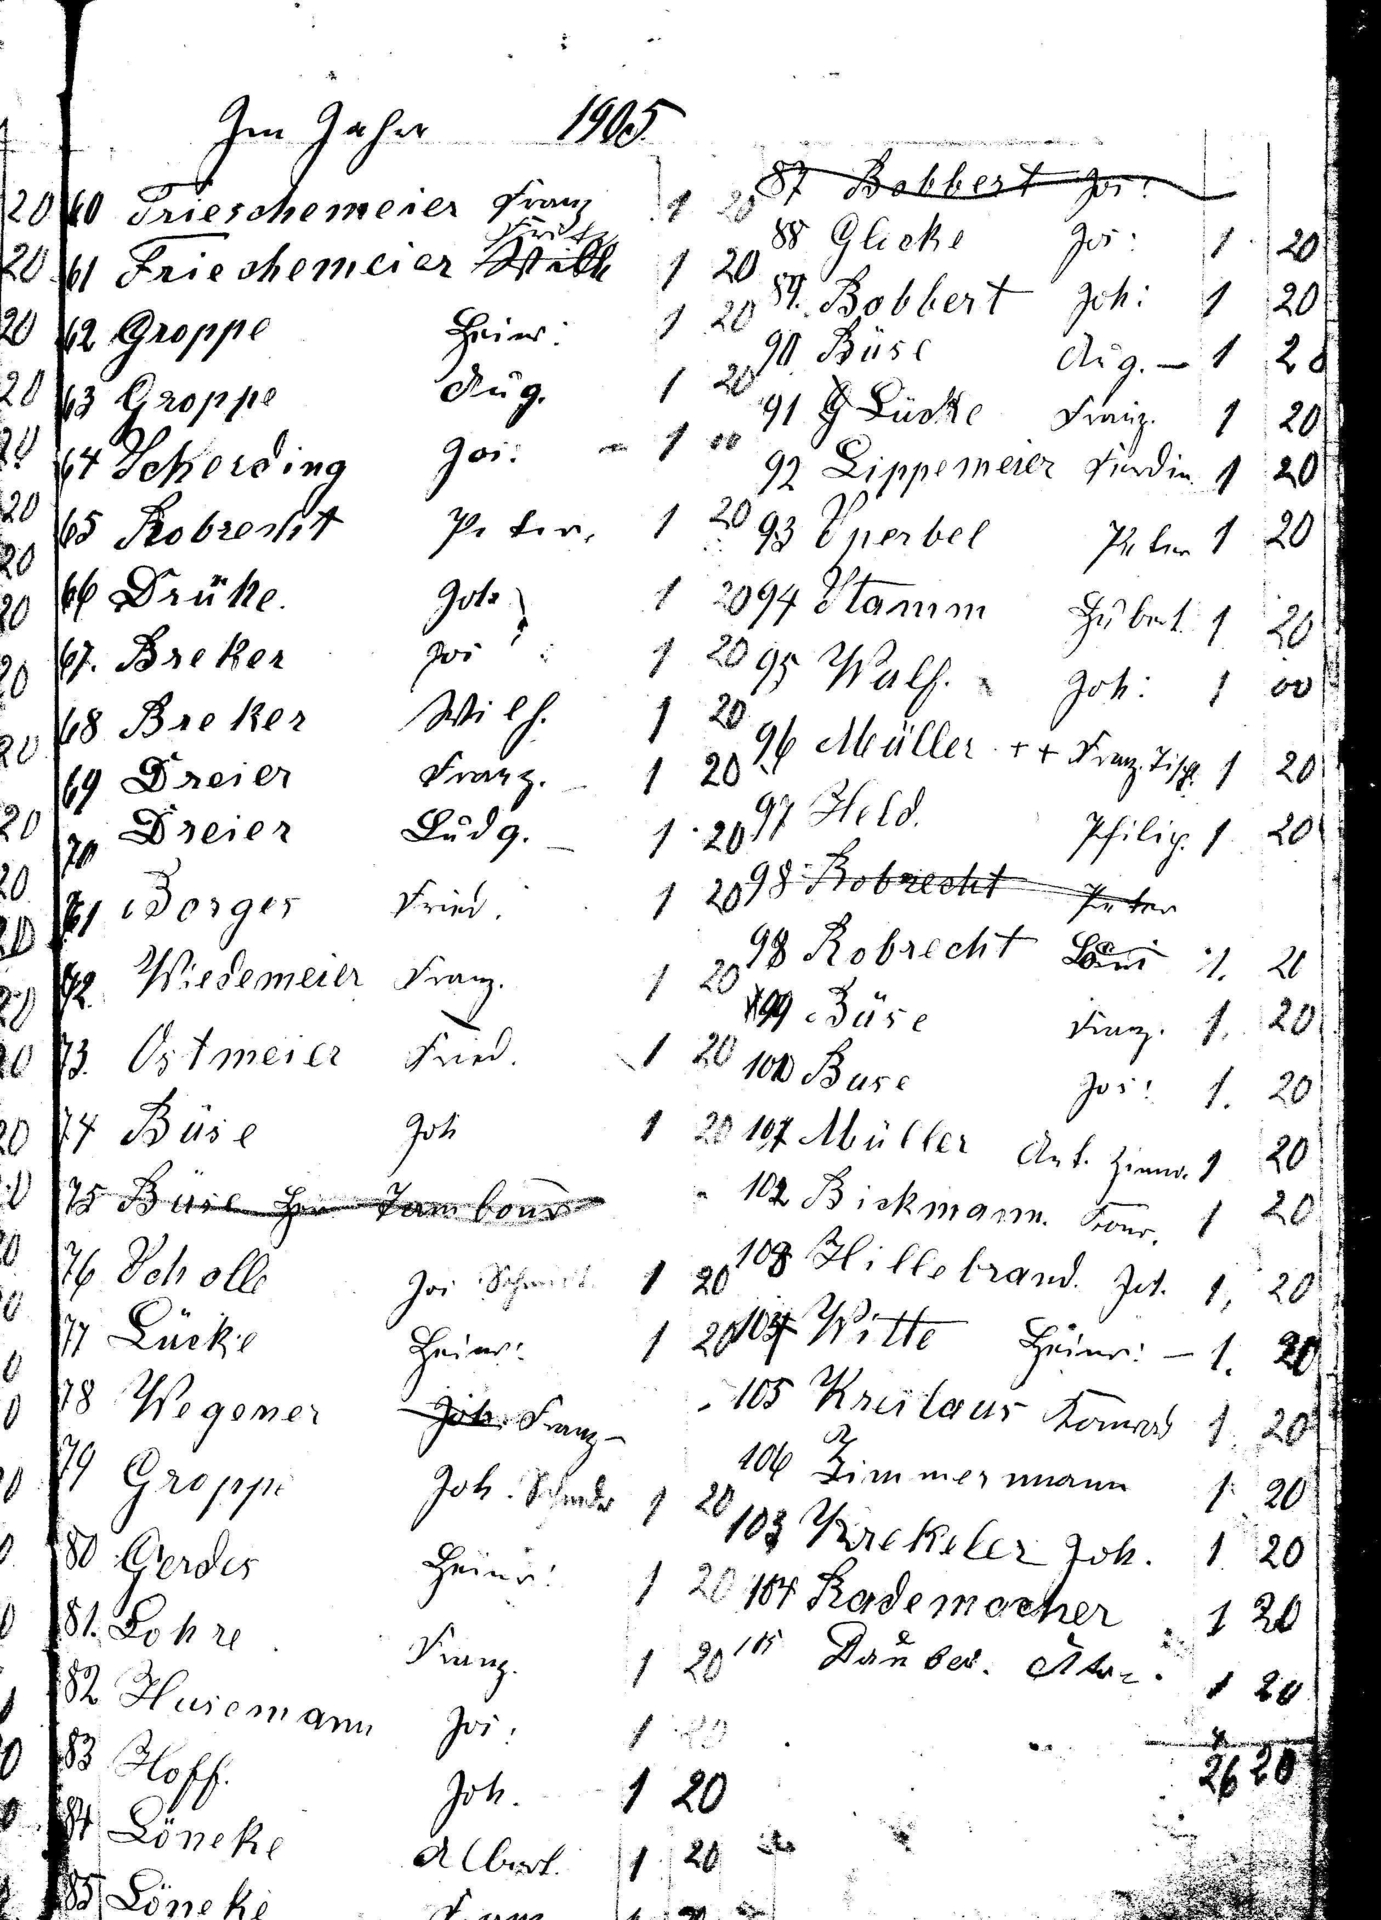 Im Jahr 1905.
60 Frieschemeier Franz 1 20
61 Frieschemeier Wilh Fritz 1 20
62 Groppe Heinr: 1 20
63 Groppe Aug. 1 20
64 Scherding Jos: - 1 00
65 Robrecht Peter. 1 20
66 Drüke. Joh 1 20
67. Breker Jos 1 20
68 Breker Wilh. 1 20
69 Dreier Franz. 1 20
70 Dreier Ludg. 1 20
71 Borges Fried. 1 20
72. Wiedemeier Franz. 1 20
73. Ostmeier Fried. 1 20
74 Büse Joh 1 20
75 Büse Hr Tambour
76 Scholle Jos Schmidt 1 20
77 Lücke Heinr: 1 20
78 Wegener Joh. Franz
79 Groppe Joh. 1 20
80 Gerdes Heinr: 1 20
81. Lohre Franz. 1 20
82 Husemann Jos: 1 20
83 Hoff. Joh. 1 20
84 Löneke Albert. 1 20
85 Löneke
87 Bobbert Jos:
88 Glicke Jos: 1 20
89. Bobbert Joh: 1 20
90. Büse Aug. - 1 20
91 Lücke Franz. 1 20
92 Lippemeier Ferdin. 1 20
93 Sperbel Peter 1 20
94 Stamm Hubert. 1 20
95 Walf. Joh: 1 00
96 Müller ++ Franz. Tischl. 1 20
97 Held. Philip. 1 20
98 Robrecht Peter
98 Robrecht Louis 1. 20
99 Büse Franz. 1. 20
100 Buse Jos: 1. 20
107 Müller Ant. Zimmr. 1 20
102 Bickmann. 1 20
103 Hillebrand. Joh. 1, 20
104 Witte Heinr: - 1. 20
105 Kreilaus Konrad 1 20
106 Zimmermann 1 20
103 Krekeler Joh. 1 20
104 Rademacher 1 20
105 Dauber. 1 20
26 20